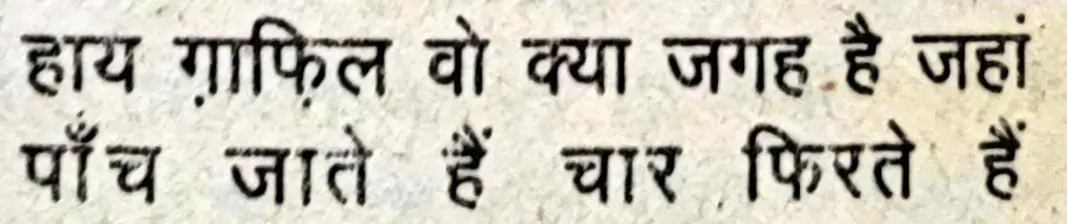 हाय ग़ाफ़िल वो क्या जगह है जहां
पाँच जाते हैं चार फिरते हैं